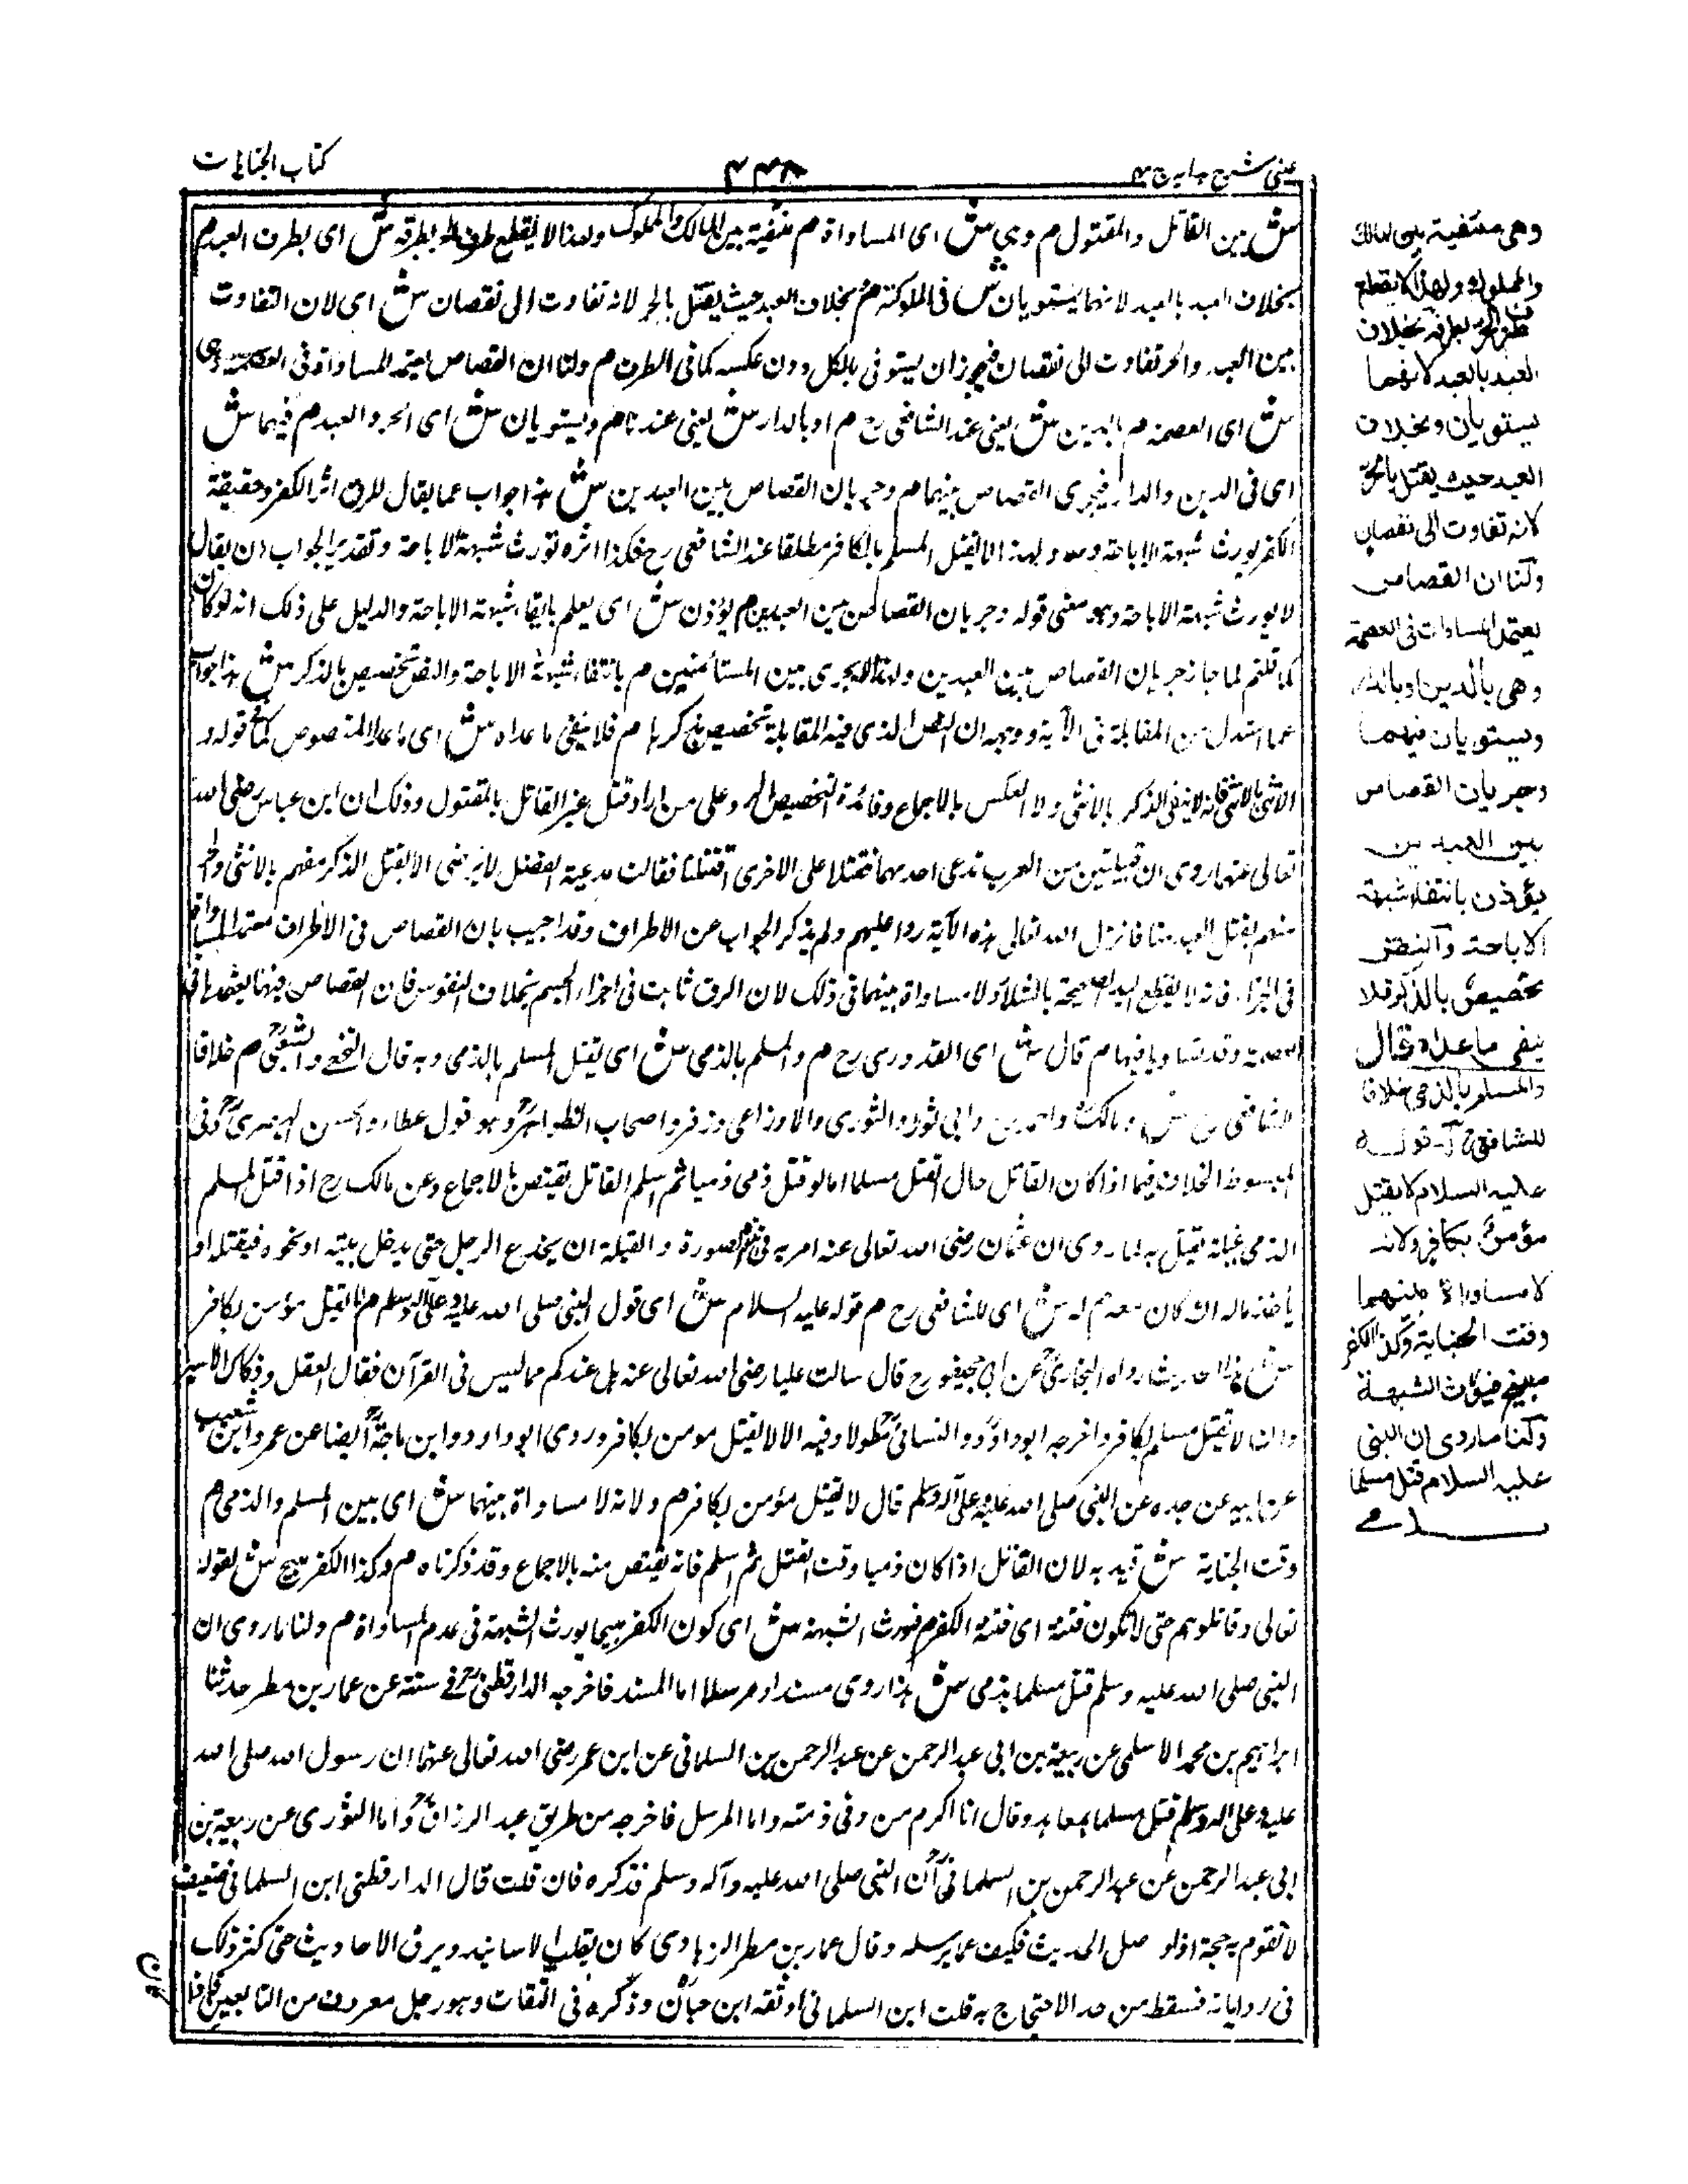 عینی شرح ہدایہ ج ۴
کتاب الجنایات
ش بین القاتل والمقتول م وہی ش ای المساواة م منتفیة بین المالک والمملوک ولہذا لا یقطع طرف الحر بطرفه ش ای بطرف العبد م
بخلاف العبد بالعبد لانہما یستویان ش فی المملوکیة م بخلاف العبد حیث یقتل بالحر لانه تفاوت الی نقصان ش ای لان التفاوت
بین العبد والحر تفاوت الی نقصان فیجوز ان یستوفی بالکل دون عکسه کما فی الطرف م ولنا ان القصاص یعتمد المساواة فی العصمة وہی
ش ای العصمة م بالدین ش یعنی عند الشافعی رح م او بالدار ش یعنی عندنا م ویستویان ش ای الحر والعبد م فیہما ش
ای فی الدین والدار فیجری القصاص بینہما م وجریان القصاص بین العبدین ش ہذا جواب عما یقال للرق اثر الکفر وحقیقة
الکفر یورث شبہة الاباحة ولہذا لا یقتل المسلم بالکافر مطلقا عند الشافعی رح فکذا اثره یورث شبہة الاباحة وتقدیر الجواب ان یقال
لا یورث شبہة الاباحة وہو معنی قوله وجریان القصاص بین العبدین م یؤذن ش ای یعلم بانتفاء شبہة الاباحة والدلیل علی ذلک انه لو کان
کما قلتم لما جاز جریان القصاص بین العبدین ولہذا لا یجری بین المستأمنین م بانتفاء شبہة الاباحة والنص تخصیص بالذکر ش ہذا جواب
عما استدل من المقابلة فی الآیة ووجہه ان النص الذی فیه المقابلة تخصیص بذکر م فلا ینفی ما عداه ش ای ما عدا المنصوص کما فی قوله و
الانثی بالانثی فانه لا ینفی الذکر بالانثی ولا العکس بالاجماع وفائدة التخصیص الرد علی من اراد قتل غیر القاتل بالمقتول وذلک ان ابن عباس رضی الله
تعالی عنہما روی ان قبیلتین من العرب تدعی احدہما فضلا علی الاخری اقتتلتا فقالت مدعیة الفضل لا نرضی الا بقتل الذکر منہم بالانثی والحر
منہم بقتل العبد منا فانزل الله تعالی ہذه الآیة ردا علیہم ولم یذکر الجواب عن الاطراف وقد اجیب بان القصاص فی الاطراف یعتمد المساواة
فی الجزاء فانه لا یقطع الید الصحیحة بالشلاء ولا مساواة بینہما فی ذلک لان الرق ثابت فی اجزاء الجسم بخلاف النفوس فان القصاص فیہا یعتمدہا فی
العصمة وقد تساویا فیہا م قال ش ای القدوری رح م والمسلم بالذمی ش ای یقتل المسلم بالذمی وبه قال النخعی والشعبی م خلافا
للشافعی رح ش ومالک واحمد وابی ثور والثوری والاوزاعی وزفر واصحاب الظواہر وہو قول عطاء والحسن البصری وفی
المبسوط الخلاف فیما اذا کان القاتل حال القتل مسلما اما لو قتل ذمی ذمیا ثم اسلم القاتل یقتص بالاجماع وعن مالک رح اذا قتل المسلم
الذمی غیلة یقتل به لما روی ان عثمان رضی الله تعالی عنه امر به فی ہذه الصورة والغیلة ان یخدع الرجل حتی یدخل بیته او نحوه فیقتله او
یأخذ ماله ان کان معه م له ش ای للشافعی رح م قوله علیه السلام ش ای قول النبی صلی الله علیه وعلی آله وسلم م لا یقتل مؤمن بکافر
ش ہذا الحدیث رواه البخاری عن ابی جحیفة رح قال سالت علیا رضی الله تعالی عنه ہل عندکم مما لیس فی القرآن فقال العقل وفکاک الاسیر
وان لا یقتل مسلم بکافر واخرجه ابوداود والنسائی مطولا وفیه الا لا یقتل مومن بکافر وروی ابوداود وابن ماجة ایضا عن عمرو ابن شعیب
عن ابیه عن جده عن النبی صلی الله علیه وعلی آله وسلم قال لا یقتل مؤمن بکافر م ولانه لا مساواة بینہما ش ای بین المسلم والذمی م
وقت الجنایة ش قید به لان القاتل اذا کان ذمیا وقت القتل ثم اسلم فانه یقتص منه بالاجماع وقد ذکرناه م وکذا الکفر مبیح ش لقوله
تعالی وقاتلوہم حتی لا تکون فتنة ای فتنة الکفر م فیورث الشبہة ش ای کون الکفر مبیحا یورث الشبہة فی عدم المساواة م ولنا ما روی ان
النبی صلی الله علیه وسلم قتل مسلما بذمی ش ہذا روی مسندا ومرسلا اما المسند فاخرجه الدارقطنی فی سننه عن عمار بن مطر حدثنا
ابراہیم بن محمد الاسلمی عن ربیعة بن ابی عبد الرحمن عن عبد الرحمن بن السلمانی عن ابن عمر رضی الله تعالی عنہما ان رسول الله صلی الله
علیه وعلی آله وسلم قتل مسلما بمعاہد وقال انا اکرم من وفی ذمته واما المرسل فاخرجه من طریق عبد الرزاق انا الثوری عن ربیعة بن
ابی عبد الرحمن عن عبد الرحمن بن السلمانی ان النبی صلی الله علیه وآله وسلم فذکره فان قلت قال الدارقطنی ابن السلمانی ضعیف
لا تقوم به حجة اذا وصل الحدیث فکیف بما یرسله وقال عمار بن مطر الرہاوی کان یقلب الاسانید ویسرق الاحادیث حتی کثر ذلک
فی روایاته فسقط من حد الاحتجاج به قلت ابن السلمانی وثقه ابن حبان وذکره فی الثقات وہو رجل معروف من التابعین
وهی منتفیة بین المالک
والمملوک ولهذا لا یقطع
طرف الحر بطرفه بخلاف
العبد بالعبد لانهما
یستویان وبخلاف
العبد حیث یقتل بالحر
لانه تفاوت الی نقصان
ولنا ان القصاص
یعتمد المساوات فی العصمة
وهی بالدین او بالدار
ویستویان فیهما
وجریان القصاص
بین العبدین
یؤذن بانتفاء شبهة
الاباحة والنص
تخصیص بالذکر فلا
ینفی ما عداه قال
والمسلم بالذمی خلافا
للشافعی رح له قوله
علیه السلام لا یقتل
مؤمن بکافر ولانه
لا مساواة بینهما
وقت الجنایة وکذا الکفر
مبیح فیورث الشبهة
ولنا ما روی ان النبی
علیه السلام قتل مسلما
بذمی